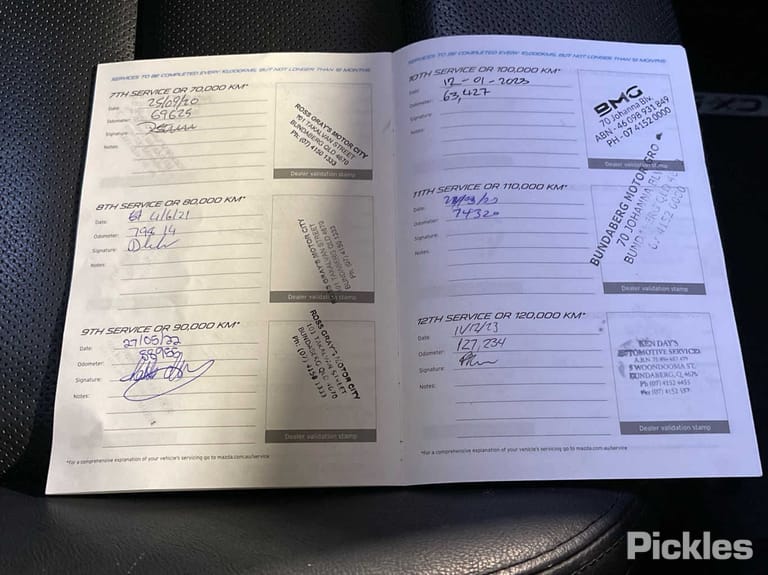 SERVICES TO BE COMPLETED EVERY 10,000KMS, BUT NOT LONGER THAN 12 MONTHS
7TH SERVICE OR 70,000 KM*
Date: 25/09/20
Odometer: 69625
Signature:
Notes:
ROSS GRAY'S MOTOR CITY
101 TAKALVAN STREET
BUNDABERG QLD 4670
Ph: (07) 4150 1333
Dealer validation stamp
8TH SERVICE OR 80,000 KM*
Date: 4/6/21
Odometer: 79814
Signature:
Notes:
ROSS GRAY'S MOTOR CITY
101 TAKALVAN STREET
BUNDABERG QLD 4670
Ph: (07) 4150 1333
Dealer validation stamp
9TH SERVICE OR 90,000 KM*
Date: 27/05/22
Odometer:
Signature:
Notes:
ROSS GRAY'S MOTOR CITY
101 TAKALVAN STREET
BUNDABERG QLD 4670
Ph: (07) 4150 1333
Dealer validation stamp
*For a comprehensive explanation of your vehicle's servicing go to mazda.com.au/service
SERVICES TO BE COMPLETED EVERY 10,000KMS, BUT NOT LONGER THAN 12 MONTHS
10TH SERVICE OR 100,000 KM*
Date: 12-01-2023
Odometer: 63,427
Signature:
Notes:
BMG
70 Johanna Blv.
ABN - 46 098 931 849
PH - 07 4152 0000
Dealer validation stamp
11TH SERVICE OR 110,000 KM*
Date:
Odometer: 74320
Signature:
Notes:
BUNDABERG MOTOR GRO
70 JOHANNA BLV
BUNDABERG QLD
07 4152 0000
Dealer validation stamp
12TH SERVICE OR 120,000 KM*
Date: 11/12/23
Odometer: 127,234
Signature:
Notes:
KEN DAY'S
AUTOMOTIVE SERVICES
5 WOONDOOMA ST.
BUNDABERG, Q. 4670
Ph (07) 4152 6455
Dealer validation stamp
*For a comprehensive explanation of your vehicle's servicing go to mazda.com.au/service
Pickles